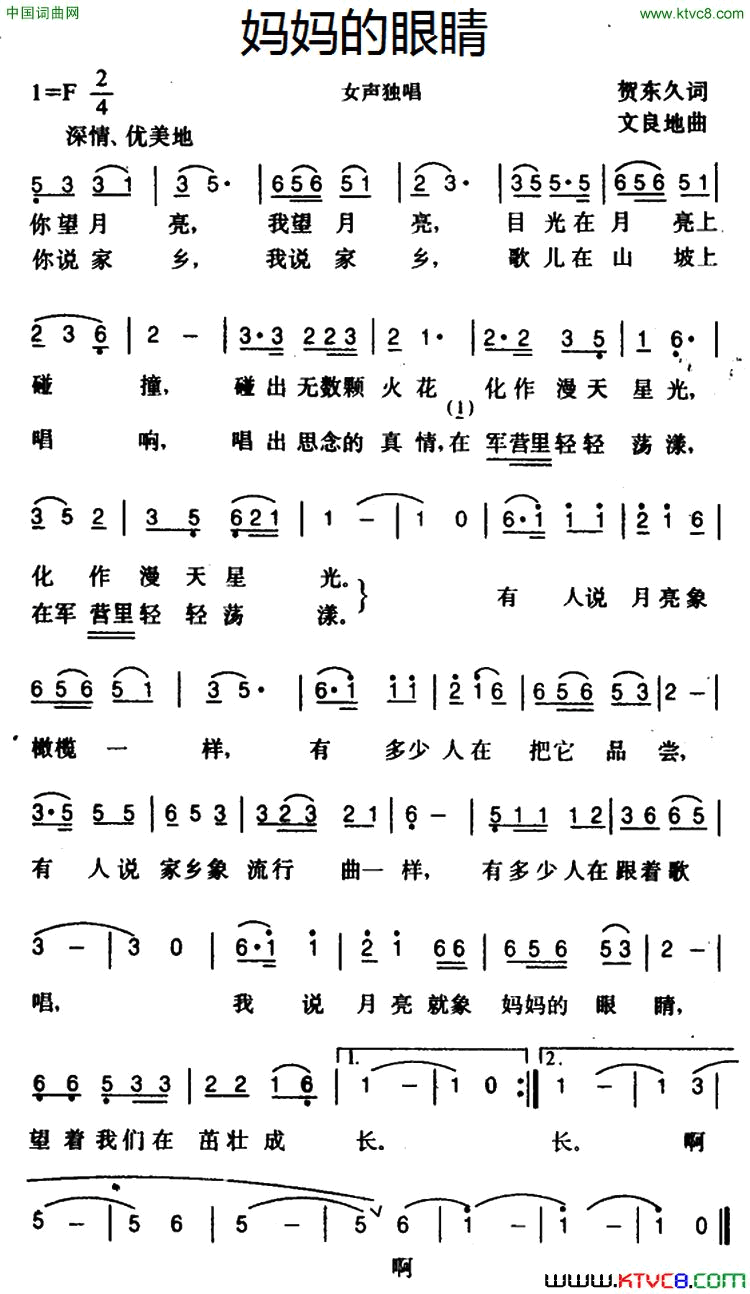 中国词曲网
www.ktvc8.com
妈妈的眼睛
1=F 2/4
女声独唱
贺东久词
深情、优美地
文良地曲
5 3 3 1 | 3 5· | 6 5 6 5 1 | 2 3· | 3 5 5·5 | 6 5 6 5 1 |
你望月亮, 我望月亮, 目光在月亮上
你说家乡, 我说家乡, 歌儿在山坡上
2 3 6 | 2 － | 3·3 2 2 3 | 2 1· | 2·2 3 5 | 1 6· |
碰撞, 碰出无数颗火花 化作漫天星光,
(1)
唱响, 唱出思念的真情,在军营里轻轻荡漾,
3 5 2 | 3 5 6 2 1 | 1 － | 1 0 | 6·i i i | 2 i 6 |
化作漫天星光。 有人说月亮象
在军营里轻轻荡漾。
6 5 6 5 1 | 3 5· | 6·i i i | 2 i 6 | 6 5 6 5 3 | 2 － |
橄榄一样, 有多少人在把它品尝,
3·5 5 5 | 6 5 3 | 3 2 3 2 1 | 6 － | 5 1 1 1 2 | 3 6 6 5 |
有人说家乡象流行曲一样, 有多少人在跟着歌
3 － | 3 0 | 6·i i | 2 i 6 6 | 6 5 6 5 3 | 2 － |
唱, 我说月亮就象妈妈的眼睛,
1. 2.
6 6 5 3 3 | 2 2 1 6 | 1 － | 1 0 :‖ 1 － | 1 3 |
望着我们在茁壮成长。 长。 啊
5 － | 5 6 | 5 － | 5 ∨ 6 | i － | i － | i － | i 0 ‖
啊
www.KTVC8.com